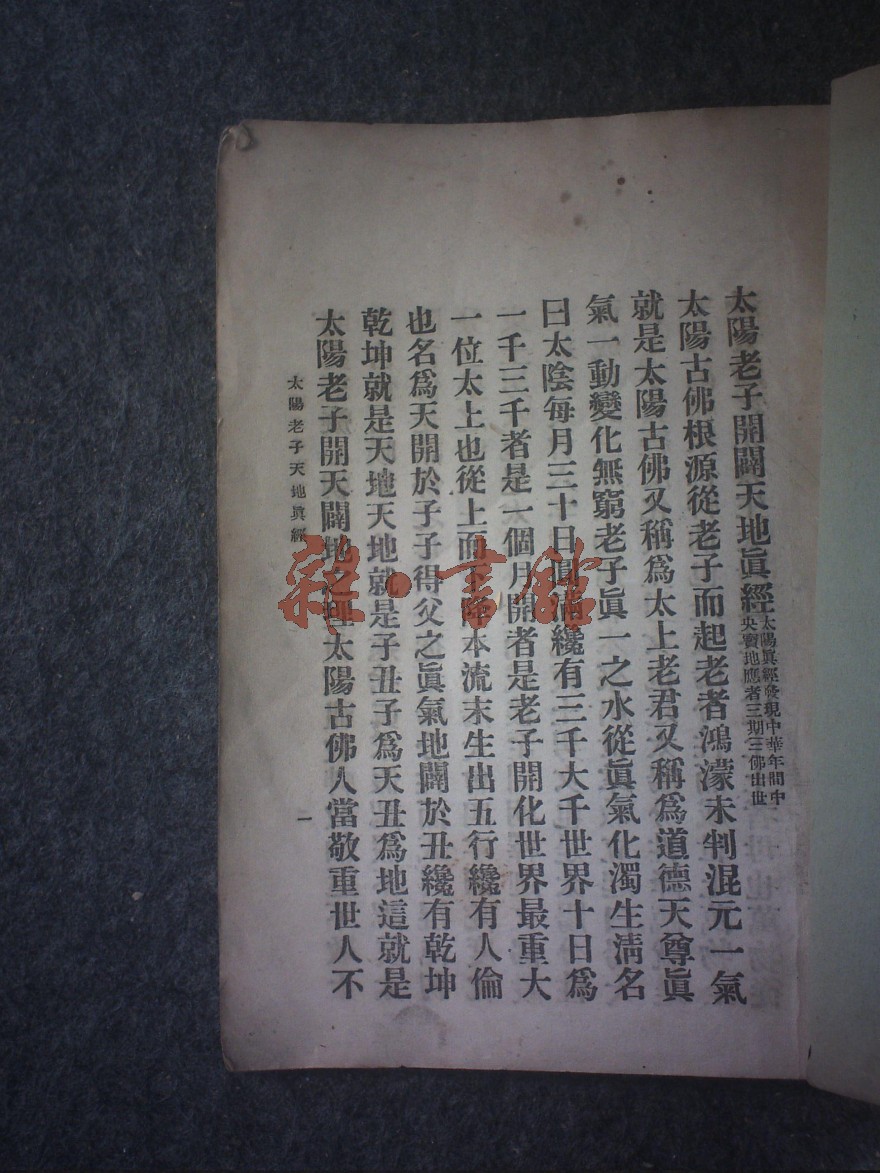 太陽老子開闢天地眞經
太陽眞經發現中華年間中
央寶地應者三期三佛出世
太陽古佛根源從老子而起老者鴻濛未判混元一氣
就是太陽古佛又稱爲太上老君又稱爲道德天尊眞
氣一動變化無窮老子眞一之水從眞氣化濁生淸名
曰太陰每月三十日圓滿纔有三千大千世界十日爲
一千三千者是一個月開者是老子開化世界最重大
一位太上也從上而下降本流末生出五行纔有人倫
也名爲天開於子子得父之眞氣地闢於丑纔有乾坤
乾坤就是天地天地就是子丑子爲天丑爲地這就是
太陽老子開天闢地之理太陽古佛人當敬重世人不
太陽老子天地眞經
一
雜·書館